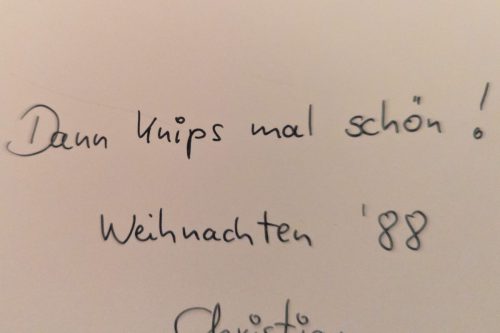 Dann Knips mal schön!
Weihnachten '88